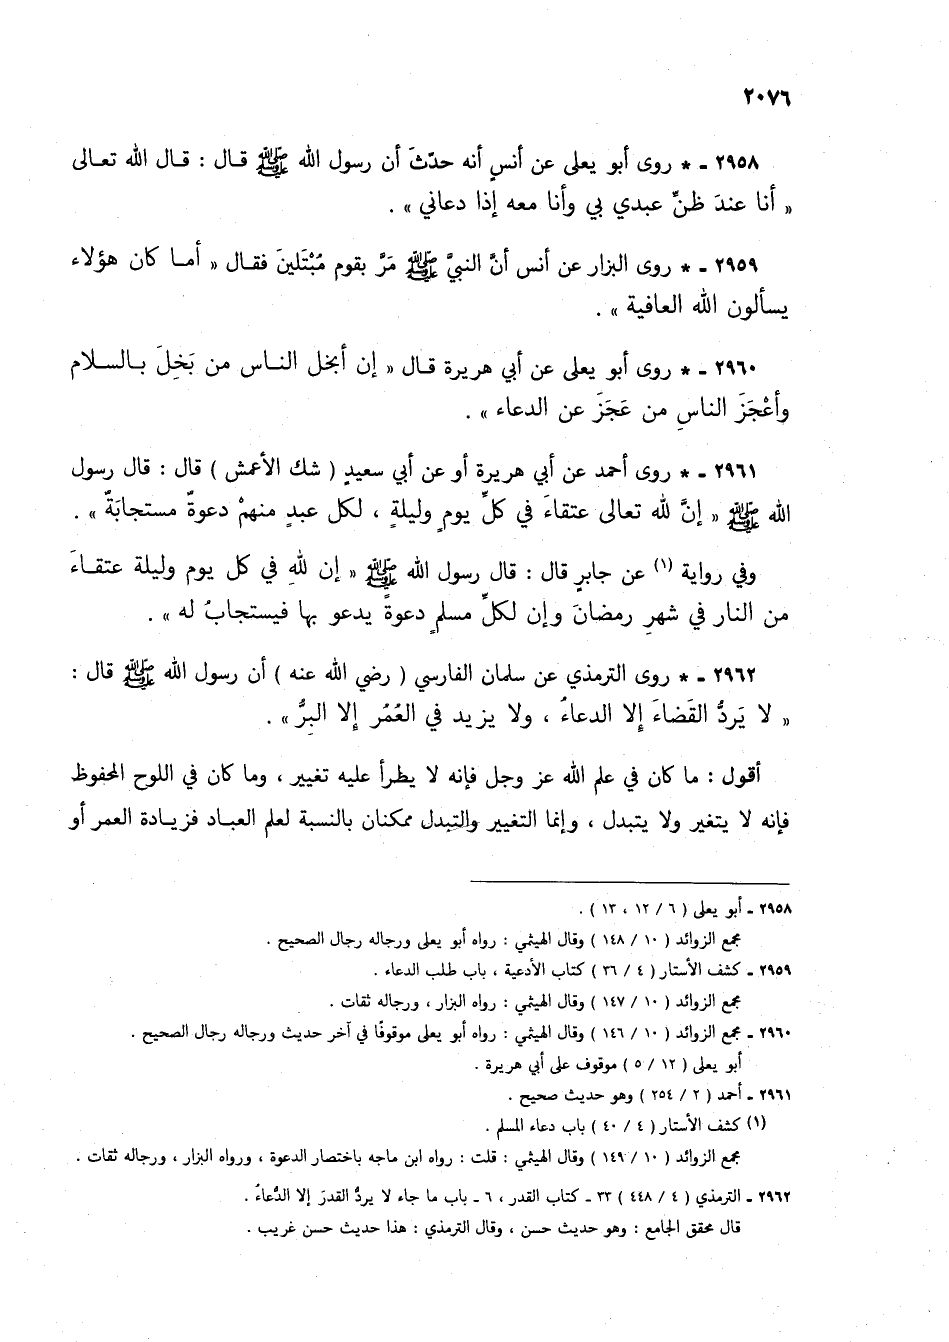 ٢٠٧٦
٢٩٥٨ ـ * روى أبو يعلى عن أنسٍ أنه حدّثَ أن رسول الله ﷺ قال : قال الله تعالى
« أنا عندَ ظنِّ عبدي بي وأنا معه إذا دعاني » .
٢٩٥٩ ـ * روى البزار عن أنس أنَّ النبيَّ ﷺ مَرَّ بقوم مُبْتَلينَ فقال « أما كان هؤلاء
يسألون الله العافية » .
٢٩٦٠ ـ * روى أبو يعلى عن أبي هريرة قال « إن أبخل الناس من بَخِلَ بالسلام
وأعْجَزَ الناسِ من عَجَزَ عن الدعاء » .
٢٩٦١ ـ * روى أحمد عن أبي هريرة أو عن أبي سعيدٍ ( شك الأعمش ) قال : قال رسول
الله ﷺ « إنَّ لله تعالى عتقاءَ في كلِّ يومٍ وليلةٍ ، لكل عبدٍ منهمْ دعوةٌ مستجابَةٌ » .
وفي رواية (١) عن جابرٍ قال : قال رسول الله ﷺ « إن للهِ في كل يوم وليلة عتقاءَ
من النار في شهرِ رمضانَ وإن لكلِّ مسلمٍ دعوةً يدعو بها فيستجابُ له » .
٢٩٦٢ ـ * روى الترمذي عن سلمان الفارسي ( رضي الله عنه ) أن رسول الله ﷺ قال :
« لا يَردُّ القَضاءَ إلا الدعاءُ ، ولا يزيد في العُمُر إلا البِرُّ » .
أقول : ما كان في علم الله عز وجل فإنه لا يظرأ عليه تغيير ، وما كان في اللوح المحفوظ
فإنه لا يتغير ولا يتبدل ، وإنما التغيير والتبدل ممكنان بالنسبة لعلم العباد فزيادة العمر أو
٢٩٥٨ ـ أبو يعلى ( ٦ / ١٢ ، ١٣ ) .
مجمع الزوائد ( ١٠ / ١٤٨ ) وقال الهيثمي : رواه أبو يعلى ورجاله رجال الصحيح .
٢٩٥٩ ـ كشف الأستار ( ٤ / ٣٦ ) كتاب الأدعية ، باب طلب الدعاء .
مجمع الزوائد ( ١٠ / ١٤٧ ) وقال الهيثمي : رواه البزار ، ورجاله ثقات .
٢٩٦٠ ـ مجمع الزوائد ( ١٠ / ١٤٦ ) وقال الهيثمي : رواه أبو يعلى موقوفًا في آخر حديث ورجاله رجال الصحيح .
أبو يعلى ( ١٢ / ٥ ) موقوف على أبي هريرة .
٢٩٦١ ـ أحمد ( ٢ / ٢٥٤ ) وهو حديث صحيح .
(١) كشف الأستار ( ٤ / ٤٠ ) باب دعاء المسلم .
مجمع الزوائد ( ١٠ / ١٤٩ ) وقال الهيثمي : قلت : رواه ابن ماجه باختصار الدعوة ، ورواه البزار ، ورجاله ثقات .
٢٩٦٢ ـ الترمذي ( ٤ / ٤٤٨ ) ٣٣ ـ كتاب القدر ، ٦ ـ باب ما جاء لا يردُّ القدرَ إلا الدُّعاءُ .
قال محقق الجامع : وهو حديث حسن ، وقال الترمذي : هذا حديث حسن غريب .